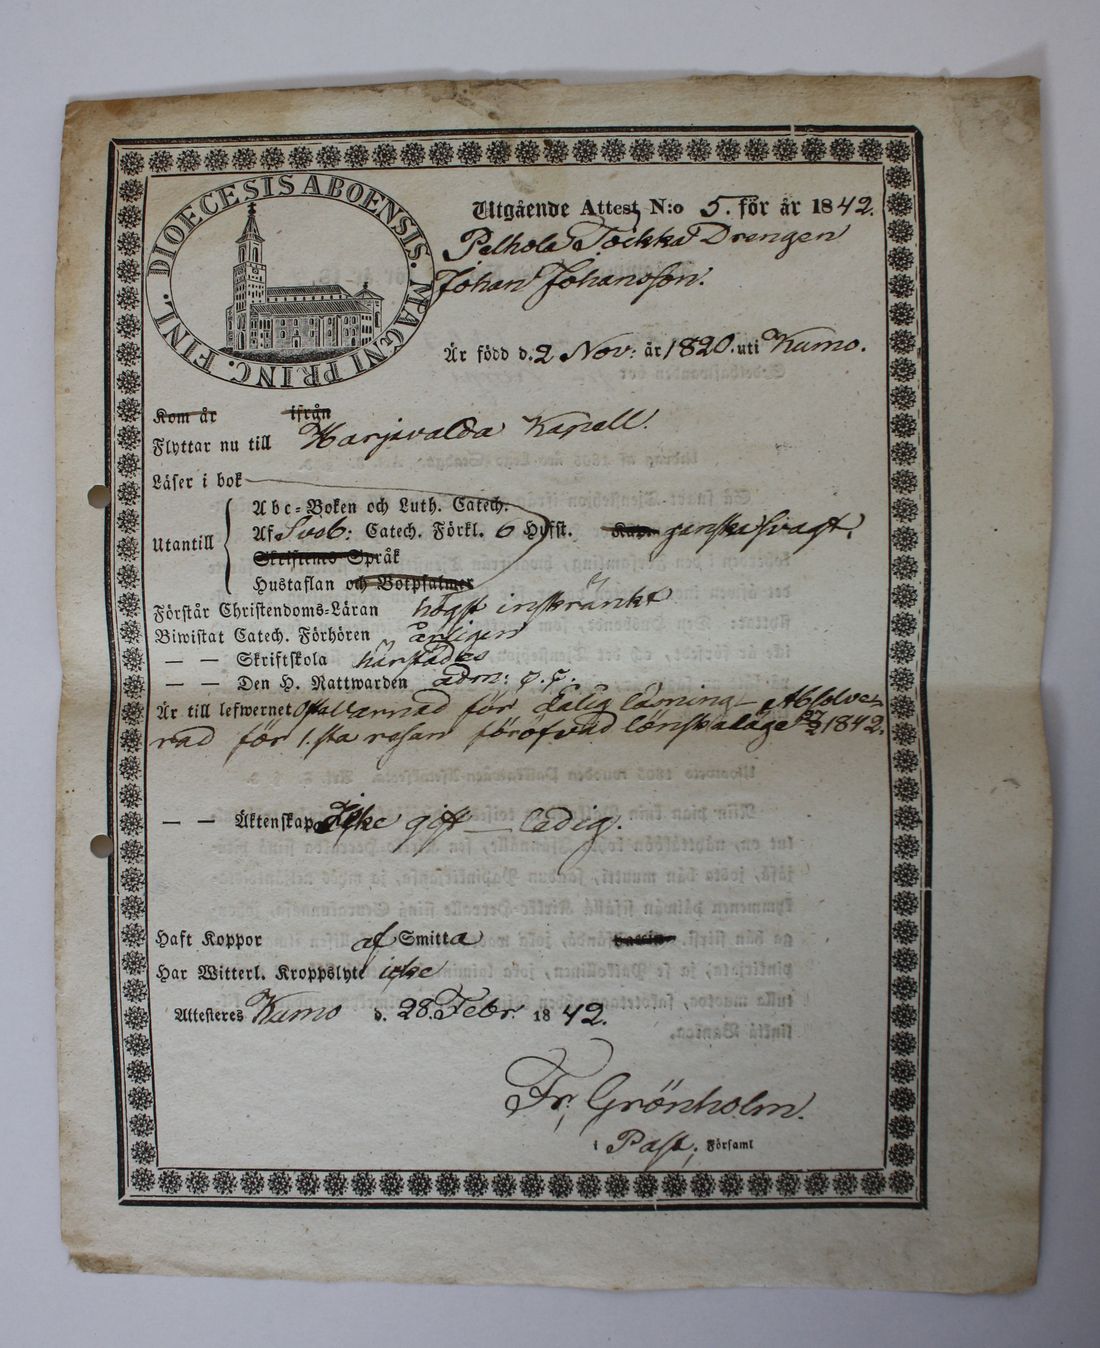 DIOECESIS ABOENSIS. MAGNI PRINC. FINL.
Utgående Attest N:o 5. för år 1842.
Pelhola Töckka Drengen
Johan Johansson.
Är född d. 2 Nov: år 1820. uti Kumo.
Kom år ifrån
Flyttar nu till Harjavalda Kapell.
Läser i bok
Abc-Boken och Luth. Catech.
Utantill Af Sveb: Catech. Förkl. 6 Hufst. ganska svagt.
Skriftenes Språk
Hustaflan och Botpsalmer
Förstår Christendoms-Läran högst inskränkt
Biwistat Catech. Förhören årligen
— — Skriftskola härstädes
— — Den H. Nattwarden adm:
Är till lefwernet för dålig läsning — Absolve-
rad för 1:sta resan föröfvad lönskaläge 1842.
— — Äktenskap Icke gift — ledig.
Haft Koppor af Smitta
Har Witterl. Kroppslyte icke
Attesteres Kumo d. 28. Febr. 1842.
Fr. Grönholm.
i Past. Församl